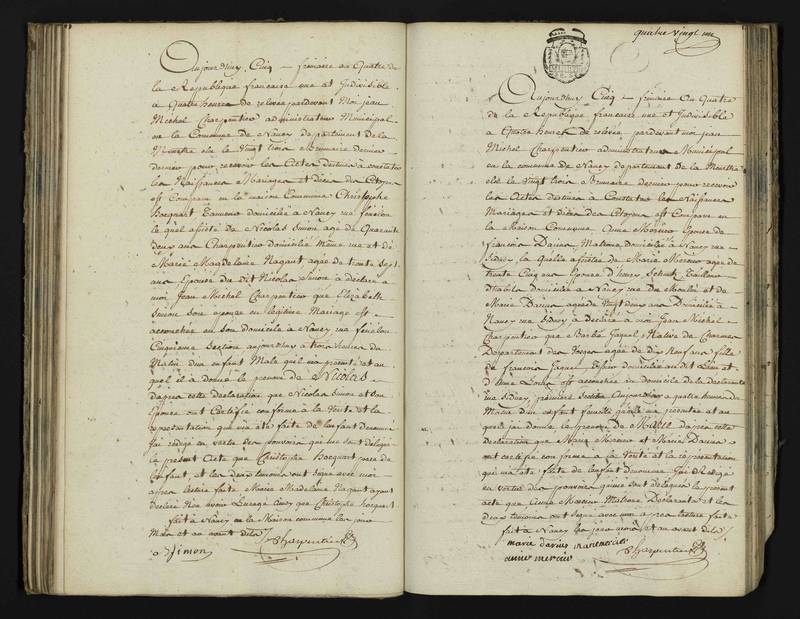 Aujourd'huy Cinq frimaire an Quatre de
la République française une et Indivisible
à Quatre heures de relevée pardevant Moi jean
Michel Charpentier administrateur Municipal
en la Commune de Nancy departement de la
Meurthe elu le Vingt trois Brumaire dernier
dernier pour recevoir les Actes destinés à constater
les Naissances Mariages et Décès des Citoyens
est Comparu en la maison Commune Christophe
Bocquart domicilié à Nancy rue fenelon
lequel assisté de Nicolas Simon agé de Quarante
deux ans Charpentier domicilié même rue et de
Marie Magdelaine Nagant agée de trente sept
ans Epouse du dit Nicolas Simon à déclaré à
moi Jean Michel Charpentier que Elizabeth
Simon son epouse en legitime Mariage est
accouchée en son domicile à Nancy rue fenelon
Cinquieme Section aujourd'huy à trois heures du
Matin d'un enfant Male qu'il m'a presenté et au
quel il à donné le prenom de Nicolas
d'après cette déclaration que Nicolas Simon et son
Epouse ont Certifié conforme à la Verité et la
representation qui m'a été faite de l'enfant denommé
J'ai redigé en vertu des pouvoirs qui me sont délégués
le present Acte que Christophe Bocquart pere de
l'enfant, et les deux temoins ont signé avec moi
apres lecture faite Marie Madelaine Nagant ayant
declaré Non avoir l'usage ainsy que Christophe Bocquart
fait à Nancy en la Maison commune les jour
Mois et an avant dits
Simon Charpentier
quatre vingt une
Aujourd'huy Cinq frimaire an Quatre
de la République française une et Indivisible
à Quatre heures de relevée pardevant moi jean
Michel Charpentier administrateur Municipal
en la commune de Nancy departement de la Meurthe
elu le Vingt trois Brumaire dernier pour recevoir
les Actes destinés à Constater les Naissances
Mariages et décès des Citoyens est Comparue en
la Maison Commune Anne Mercier Epouse de
francois Darius Matrone domiciliée à Nancy rue
Sidney laquelle assistée de Marie Mercier agée de
trente Cinq ans Epouse d'henry Tailleur
d'habits domiciliée à Nancy rue du Moulin et de
Marie Darius agée de Vingt deux ans Domiciliée à
Nancy rue Sidney à déclaré à moi Jean Michel
Charpentier que Barbe Jaquel Native de Charmes
Departement des Vosges agée de Dix Neuf ans fille
de francois Jaquel domicilié au dit Lieu et
d'Anne est accouchée au domicile de la declarante
rue Sidney, premiere Section Aujourd'huy à quatre heures du
Matin d'un enfant femelle qu'elle m'a presenté et au
quel j'ai donné le prenom de Marie d'après cette
declaration que Marie Mercier et Marie Darius
ont certifié conforme à la Verité et la representation
qui m'a été faite de l'enfant denommé J'ai Redigé
en vertu des pouvoirs qui me sont délégués le present
acte que Anne Mercier Matrone Declarante et les
deux temoins ont signé avec moi apres lecture faite
fait à Nancy les jour mois et an avant dits
marie darius marie mercier
anne mercier Charpentier